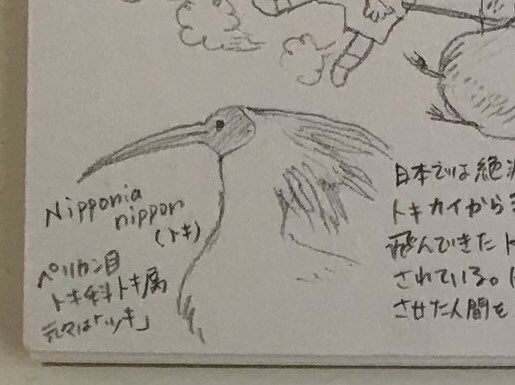 Nipponia
nippon
(トキ)
ペリカン目
トキ科トキ属
元々は「ツキ」
日本では絶
トキカイから
飛んできたト
されている。
させた人間を